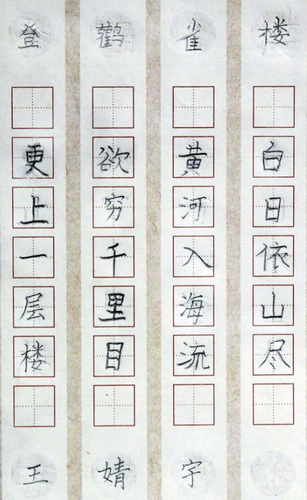 登鹳雀楼
白日依山尽
黄河入海流
欲穷千里目
更上一层楼
王婧宇